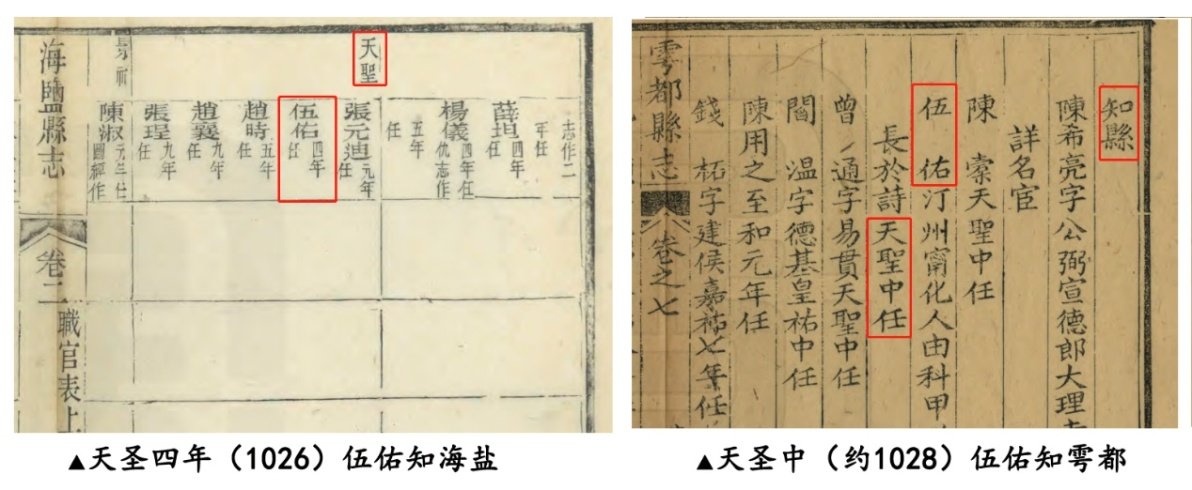 志作二
年任
薛坦四年
任
楊儀四年任
仇志作
五年
任
天聖
張元迪元年
任
伍佑四年
任
趙時五年
任
趙襄九年
任
張珵九年
任
陳淑元年任
圖經作
海鹽縣志
卷二
職官表上
知縣
陳希亮字公弼宣德郎大理
詳名宦
陳 索天聖中任
伍 佑汀州甯化人由科甲
長於詩天聖中任
曾 通字易貫天聖中任
閻 温字德基皇祐中任
陳用之至和元年任
錢 柘字建侯嘉祐七年任
雩都縣志
卷之七
▲天圣四年（1026）伍佑知海盐
▲天圣中（约1028）伍佑知雩都